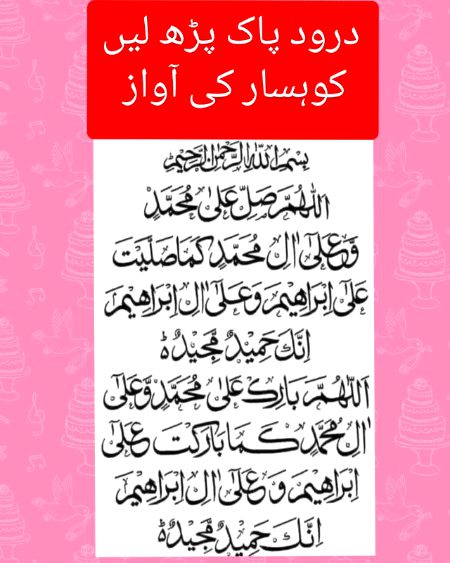 درود پاک پڑھ لیں
کوہسار کی آواز
بِسْمِ اللهِ الرَّحْمٰنِ الرَّحِيْمِ
اَللّٰهُمَّ صَلِّ عَلٰى مُحَمَّدٍ
وَّعَلٰٓى اٰلِ مُحَمَّدٍ كَمَا صَلَّيْتَ
عَلٰٓى اِبْرَاهِيْمَ وَعَلٰٓى اٰلِ اِبْرَاهِيْمَ
اِنَّكَ حَمِيْدٌ مَّجِيْدٌ ؕ
اَللّٰهُمَّ بَارِكْ عَلٰى مُحَمَّدٍ وَّعَلٰٓى
اٰلِ مُحَمَّدٍ كَمَا بَارَكْتَ عَلٰٓى
اِبْرَاهِيْمَ وَعَلٰٓى اٰلِ اِبْرَاهِيْمَ
اِنَّكَ حَمِيْدٌ مَّجِيْدٌ ؕ